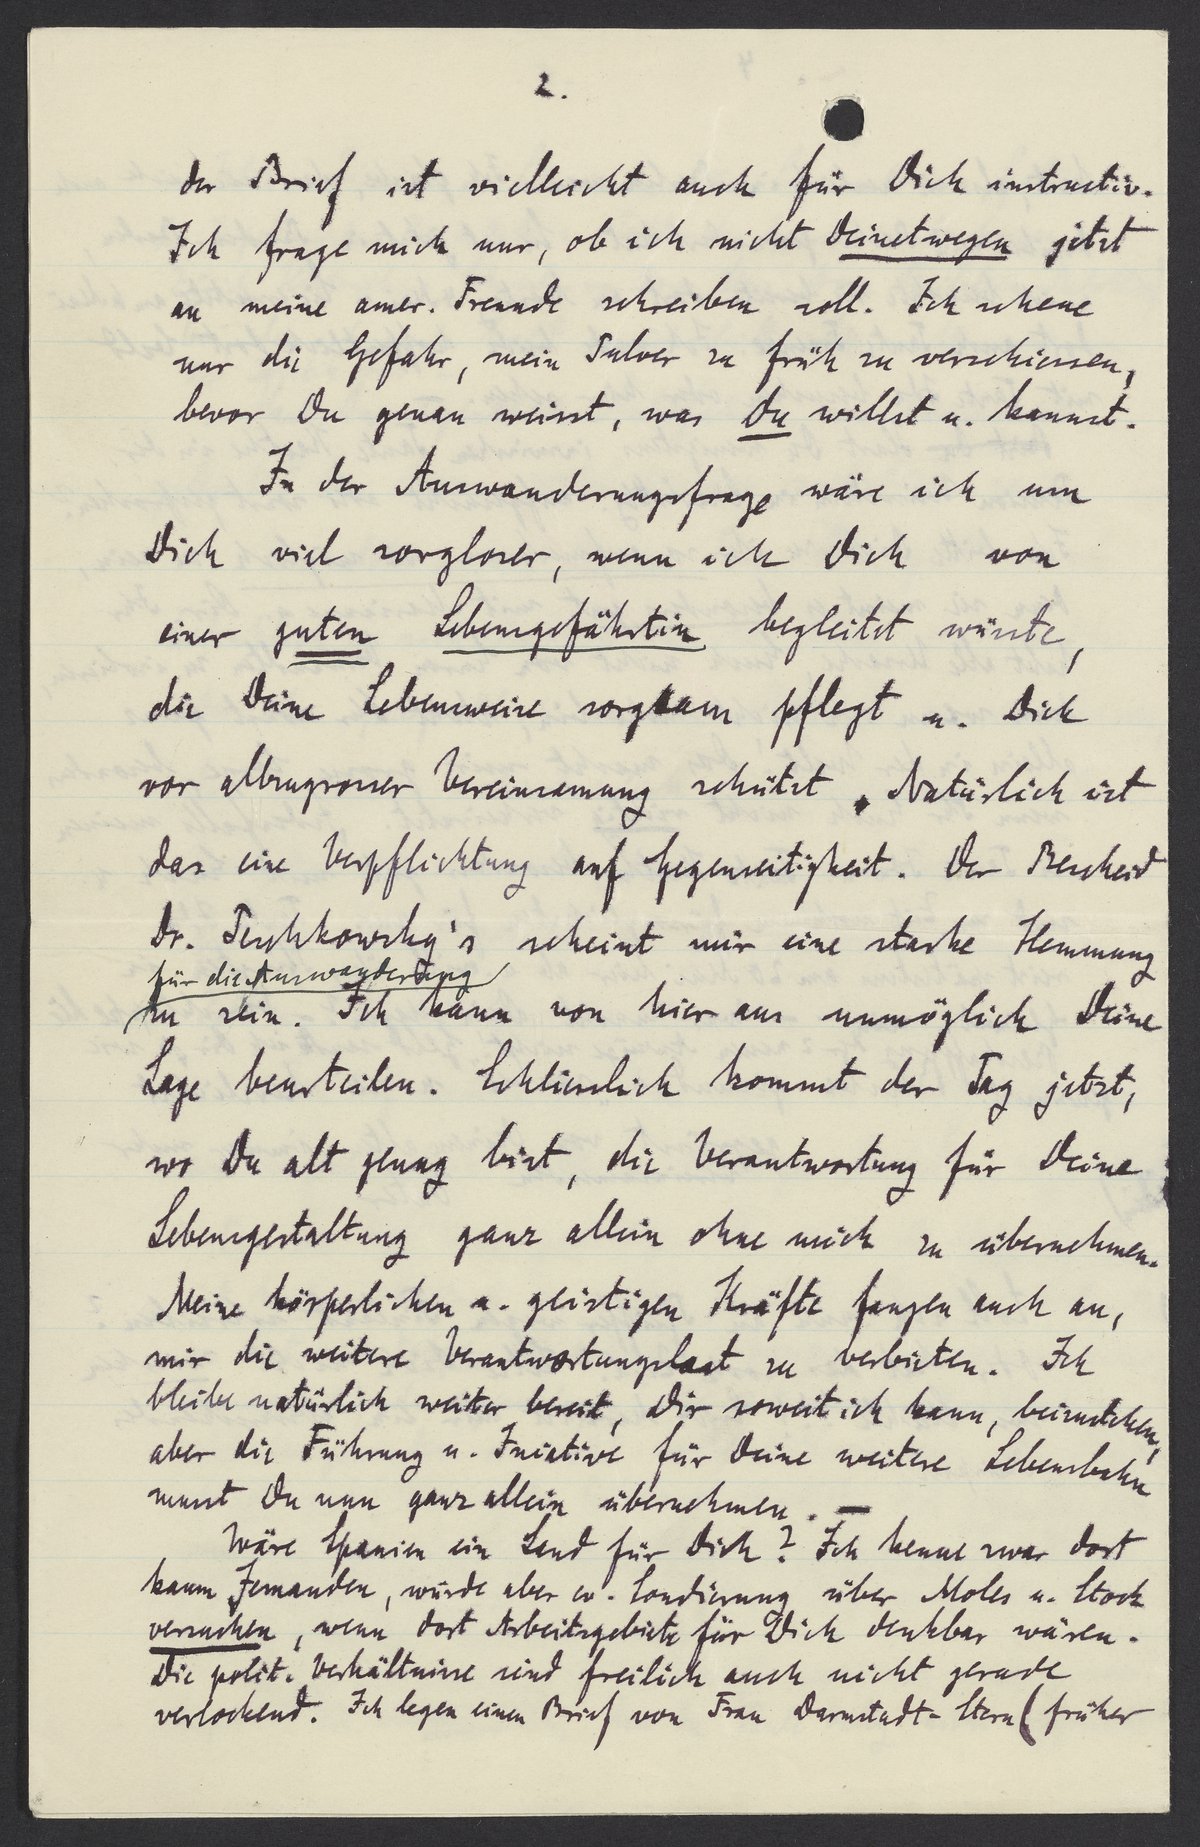 2.
der Brief ist vielleicht auch für Dich instructiv.
Ich frage mich nur, ob ich nicht Deinetwegen jetzt
an meine amer. Freunde schreiben soll. Ich scheue
nur die Gefahr, mein Pulver zu früh zu verschiessen,
bevor Du genau weisst, was Du willst u. kannst.
In der Auswanderungsfrage wäre ich um
Dich viel sorgloser, wenn ich Dich von
einer guten Lebensgefährtin begleitet wüsste,
die Deine Lebensweise sorgsam pflegt u. Dich
vor allzugrosser Vereinsamung schützt. Natürlich ist
das eine Verpflichtung auf Gegenseitigkeit. Der Bescheid
Dr. Peschkowsky's scheint mir eine starke Hemmung
für die Auswanderung
zu sein. Ich kann von hier aus unmöglich Deine
Lage beurteilen. Schliesslich kommt der Tag jetzt,
wo Du alt genug bist, die Verantwortung für Deine
Lebensgestaltung ganz allein ohne mich zu übernehmen.
Meine körperlichen u. geistigen Kräfte fangen auch an,
mir die weitere Verantwortungslast zu verbieten. Ich
bleibe natürlich weiter bereit, Dir soweit ich kann, beizustehen,
aber die Führung u. Iniative für Deine weitere Lebensbahn
musst Du nun ganz allein übernehmen. —
Wäre Spanien ein Land für Dich? Ich kenne zwar dort
kaum Jemanden, würde aber ev. Sondierung über Moles u. Stock
versuchen, wenn dort Arbeitsgebiete für Dich denkbar wären.
Die polit. Verhältnisse sind freilich auch nicht gerade
verlockend. Ich legen einen Brief von Frau Darmstadt-Stern (früher